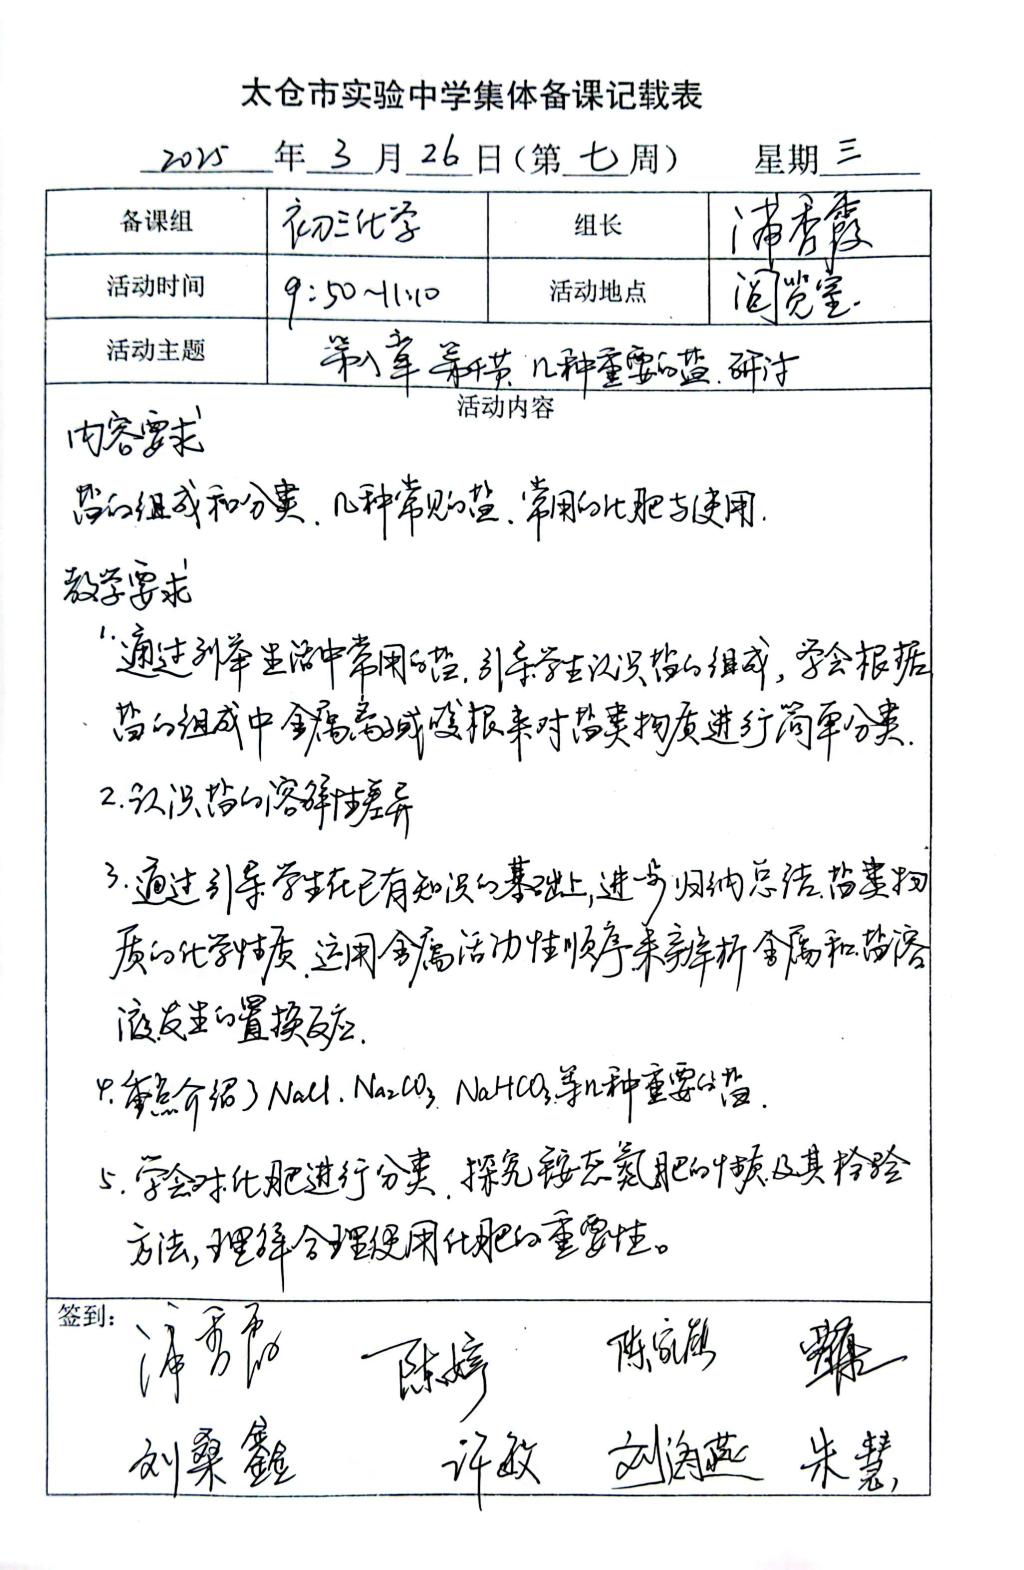 太仓市实验中学集体备课记载表
2025年3月26日(第七周) 星期三
备课组 初三化学 组长 浦秀霞
活动时间 9:50~11:10 活动地点 阅览室.
活动主题 第八章 第五节 几种重要的盐.研讨
活动内容
内容要求
盐的组成和分类、几种常见的盐、常用的化肥与使用.
教学要求
1.通过列举生活中常用的盐,引导学生认识盐的组成,学会根据
盐的组成中金属离子或酸根来对盐类物质进行简单分类.
2.认识盐的溶解性差异
3.通过引导学生在已有知识的基础上,进一步归纳总结盐类物
质的化学性质.运用金属活动性顺序来辨析金属和盐溶
液发生的置换反应.
4.重点介绍了NaCl、Na₂CO₃、NaHCO₃等几种重要的盐.
5.学会对化肥进行分类、探究铵态氮肥的性质及其检验
方法,理解合理使用化肥的重要性。
签到: 浦秀霞 陈婷 陈家
刘桑鑫 许敏 刘海燕 朱慧